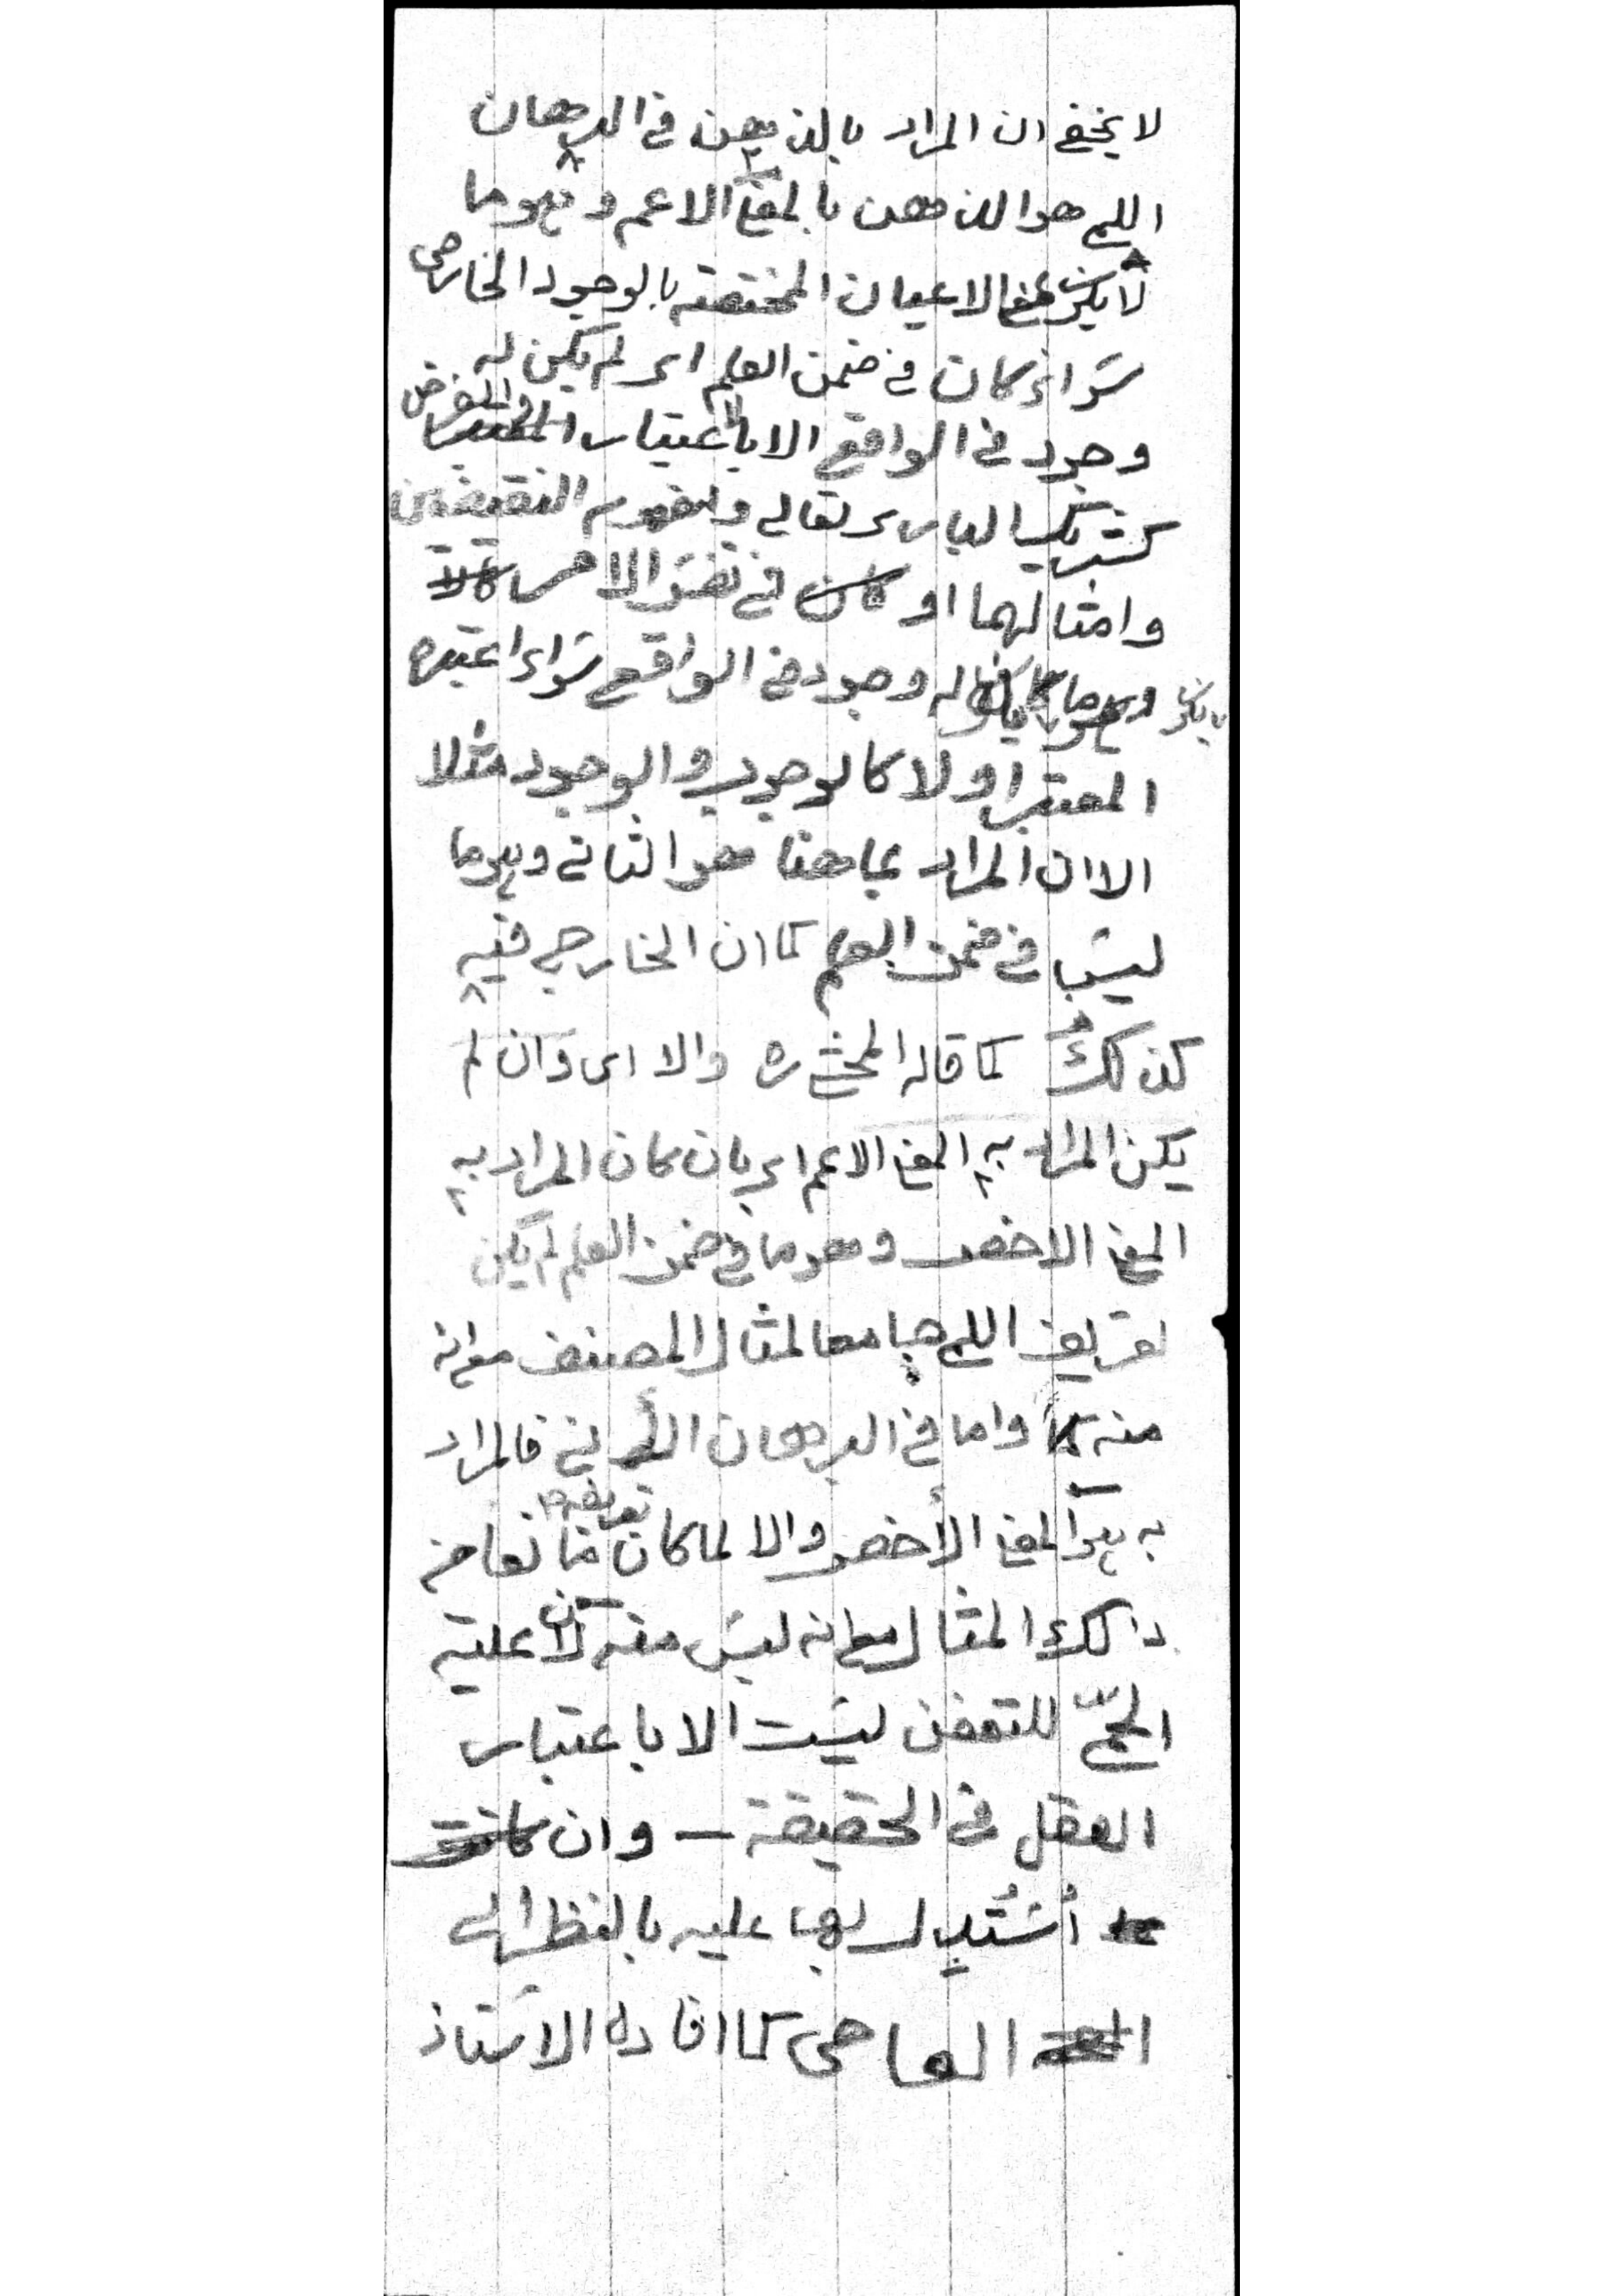 لا يخفى ان المراد بالذهن فى البرهان
اللمى هو الذهن بالمعنى الاعم وهو ما
لا يكون من الاعيان المختصة بالوجود الخارجى
سواء كان فى ضمن العلم اى لم يكن له
وجود فى الواقع الا باعتبار الفرضى
كشريك البارى تعالى و النقيضين
وامثالهما او فى نفس الامر
بان يكون له وجود فى الواقع سواء اعتبره
المعتبر اولا كالوجوب والوجود مثلا
الا ان المراد بما هنا هو الثانى وهو ما
ليس فى ضمن العلم كما ان الخارجى فيه
كذلك كما قاله المحشى ره والا اى وان لم
يكن المراد به المعنى الاعم اى بان كان المراد به
المعنى الاخص وهو ما فى ضمن العلم لم يكن
تعريف اللمى جامعا لمثال المصنف مع انه
منه واما فى البرهان الانى فالمراد
به هو المعنى الاخص والا لما كان تعريفه مانعا من
ذالك المثال مع انه ليس منه لان علية
الحمى للتعفن ليست الا باعتبار
العقل فى الحقيقة – وان
اُسْتُدِل بها عليه بالنظر الى
العامى كما افاده الاستاذ